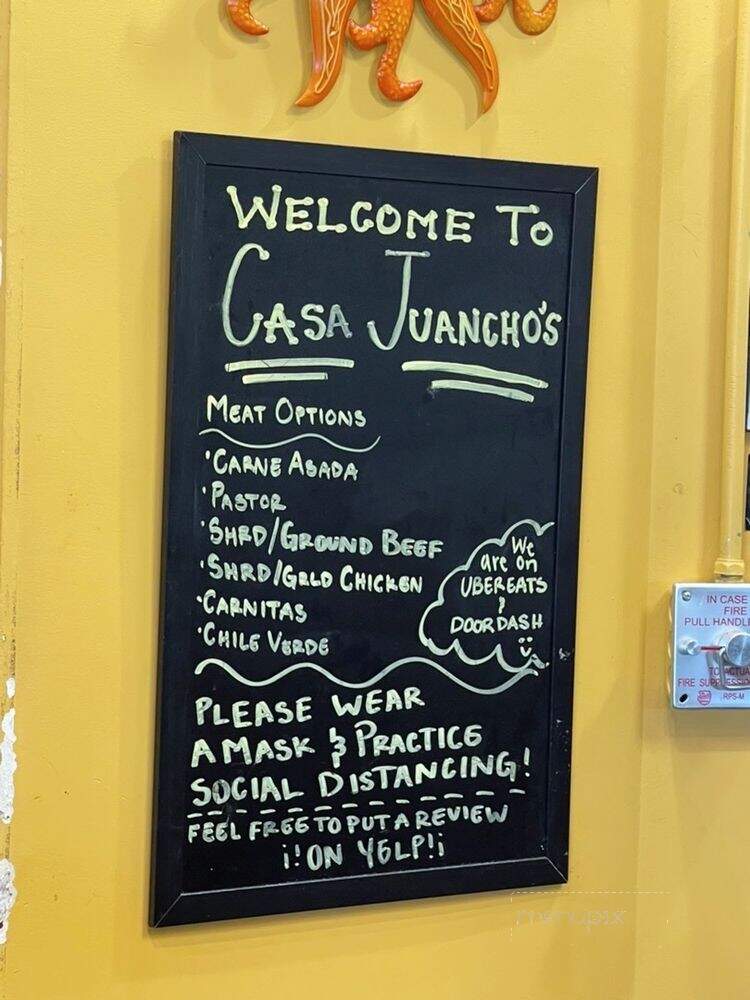 WELCOME TO
CASA JUANCHO'S
MEAT OPTIONS
·CARNE ASADA
·PASTOR
·SHRD/GROUND BEEF
·SHRD/GRLD CHICKEN
·CARNITAS
·CHILE VERDE
We
are on
UBEREATS
&
DOORDASH
PLEASE WEAR
A MASK & PRACTICE
SOCIAL DISTANCING!
FEEL FREE TO PUT A REVIEW
¡!ON YELP!¡
IN CASE
FIRE
PULL HANDLE
TO ACTUA
FIRE SUPPRESSIO
RPS-M
menupix